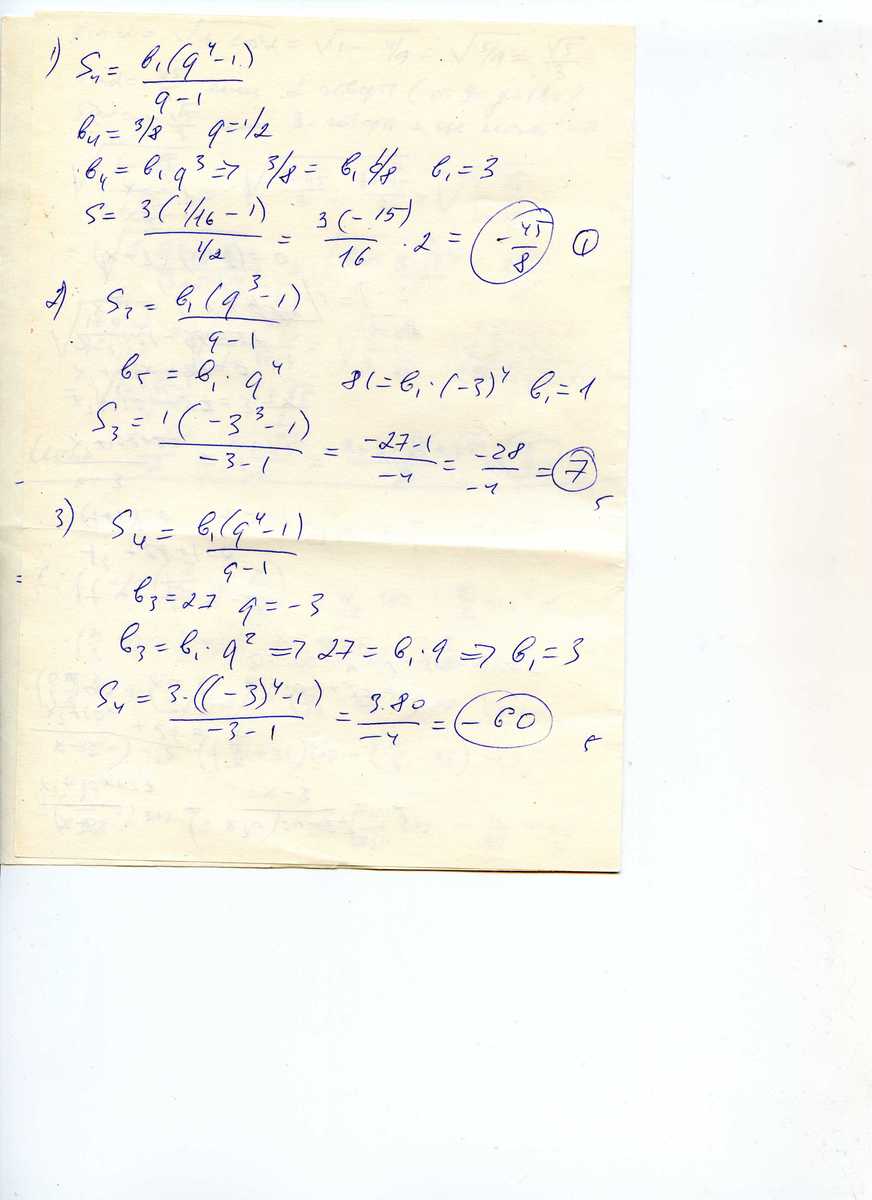 1) S₄ = b₁(q⁴-1)/(q-1)
b₄ = 3/8 q = 1/2
b₄ = b₁q³ => 3/8 = b₁1/8 b₁ = 3
S = 3(1/16 - 1)/(1/2) = 3(-15)/16 · 2 = -45/8
2) S₃ = b₁(q³-1)/(q-1)
b₅ = b₁·q⁴ 81 = b₁·(-3)⁴ b₁ = 1
S₃ = 1(-3³-1)/(-3-1) = (-27-1)/(-4) = -28/-4 = 7
3) S₄ = b₁(q⁴-1)/(q-1)
b₃ = 27 q = -3
b₃ = b₁·q² => 27 = b₁·9 => b₁ = 3
S₄ = 3·((-3)⁴-1)/(-3-1) = 3·80/(-4) = -60